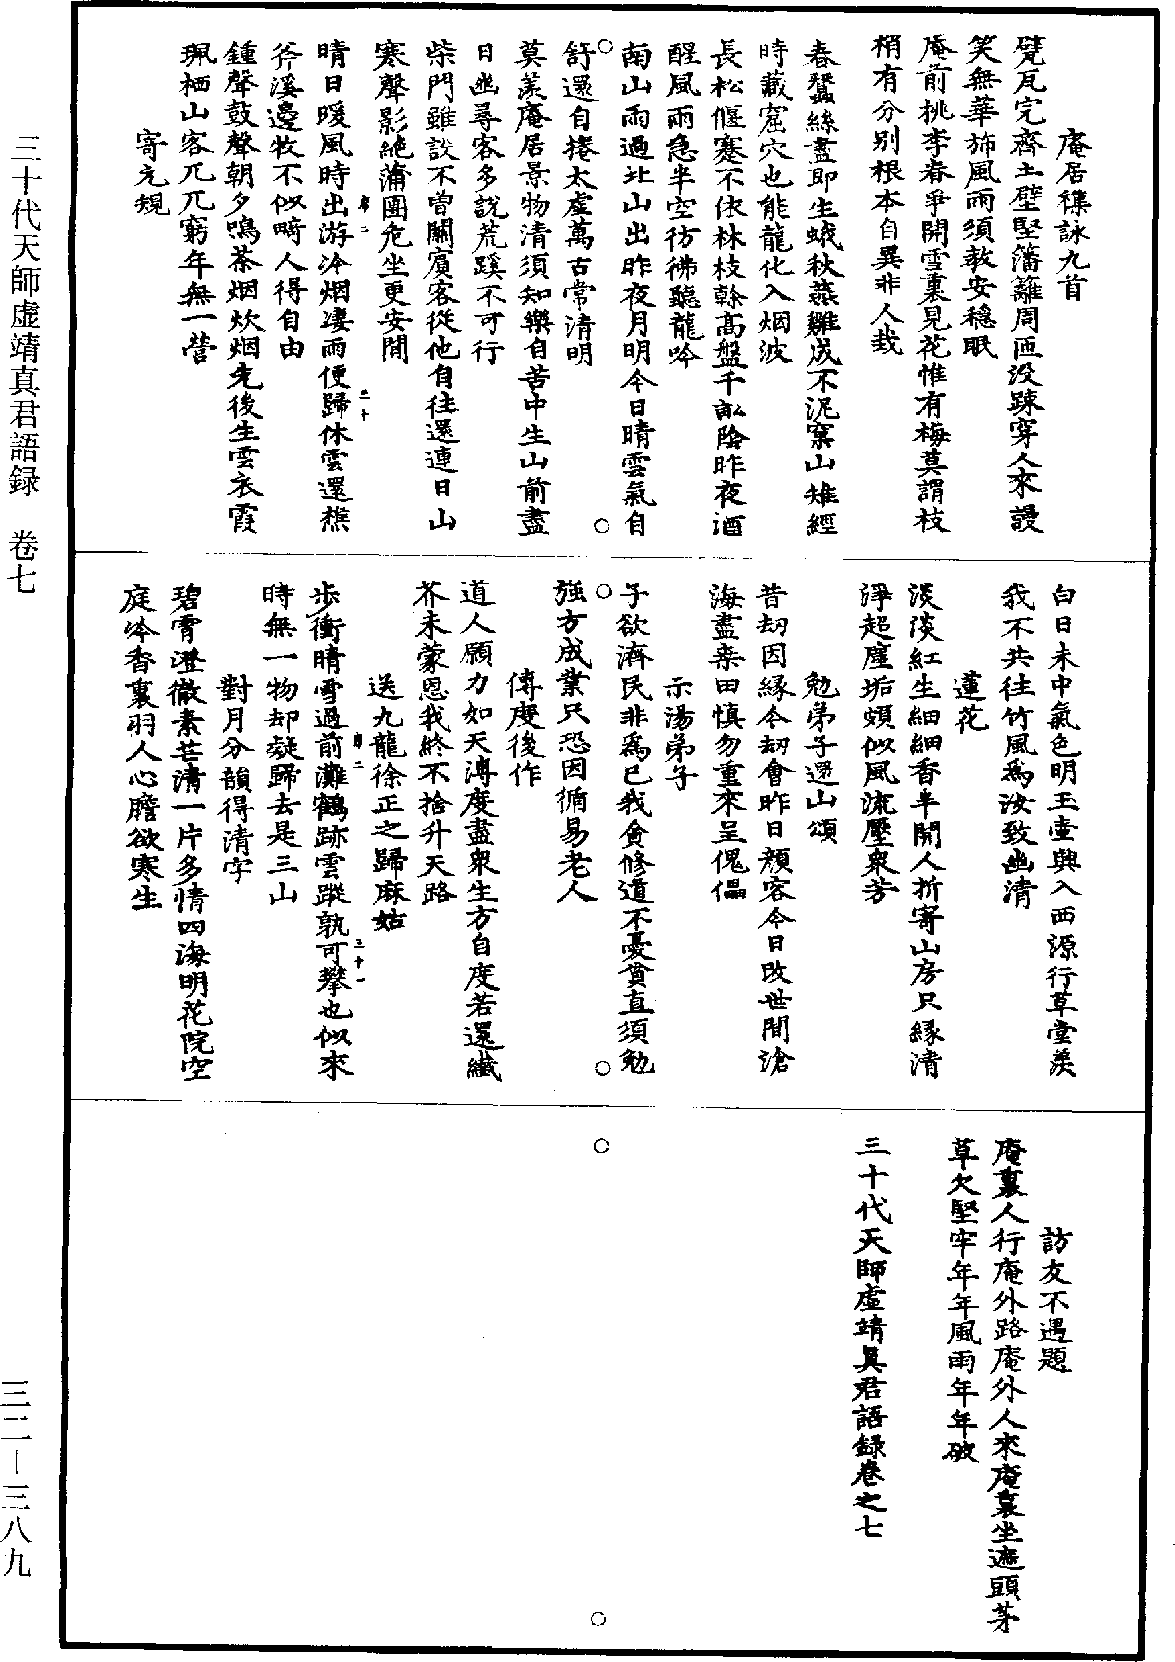 庵居雜詠九首
甓瓦完齊土壁堅籓籬周匝沒踈穿人來謾
笑無華飾風雨須教安穩眠
庵前桃李春爭開雪裏見花惟有梅莫謂枝
梢有分別根本自異非人栽
春蠶絲盡即生蛾秋燕雛成不泥窠山雉經
時藏窟穴也能龍化入烟波
長松偃蹇不依林枝榦高盤千畝陰昨夜酒
醒風雨急半空彷彿聽龍吟
南山雨過北山出昨夜月明今日晴雲氣自
舒還自捲太虛萬古常清明
莫羨庵居景物清須知樂自苦中生山前盡
日幽尋客多說荒蹊不可行
柴門雖設不曾關賓客從他自往還連日山
寒聲影絶蒲團危坐更安閒
晴日暖風時出游冷烟凄雨便歸休雲還樵
斧溪邊牧不似畸人得自由
鍾聲鼓聲朝夕鳴茶烟炊烟先後生雲衣霞
珮栖山客兀兀窮年無一營
寄元規
白日未中氣色明玉壺興入西源行草堂羨
我不共往竹風爲汝致幽清
蓮花
淡淡紅生細細香半開人折寄山房只緣清
淨超塵垢頗似風流壓衆芳
勉弟子還山頌
昔劫因緣今劫會昨日顏容今日改世間滄
海盡桒田慎勿重來呈傀儡
示湯弟子
子欲濟民非爲己我貪修道不憂貧直須勉
強方成業只恐因循易老人
傳度後作
道人願力如天溥度盡衆生方自度若還纖
芥未蒙恩我終不捨升天路
送九龍徐正之歸麻姑
步衝晴雪過前灘鶴跡雲蹤孰可攀也似來
時無一物却疑歸去是三山
對月分韻得清字
碧霄澄徹素芒清一片多情四海明花院空
庭吟香裏羽人心膽欲寒生
訪友不遇題
庵裏人行庵外路庵外人來庵裏坐遮頭茅
草欠堅牢年年風雨年年破
三十代天師虛靖真君語録卷之七
三十代天師虛靖真君語録　卷七
三二—三八九